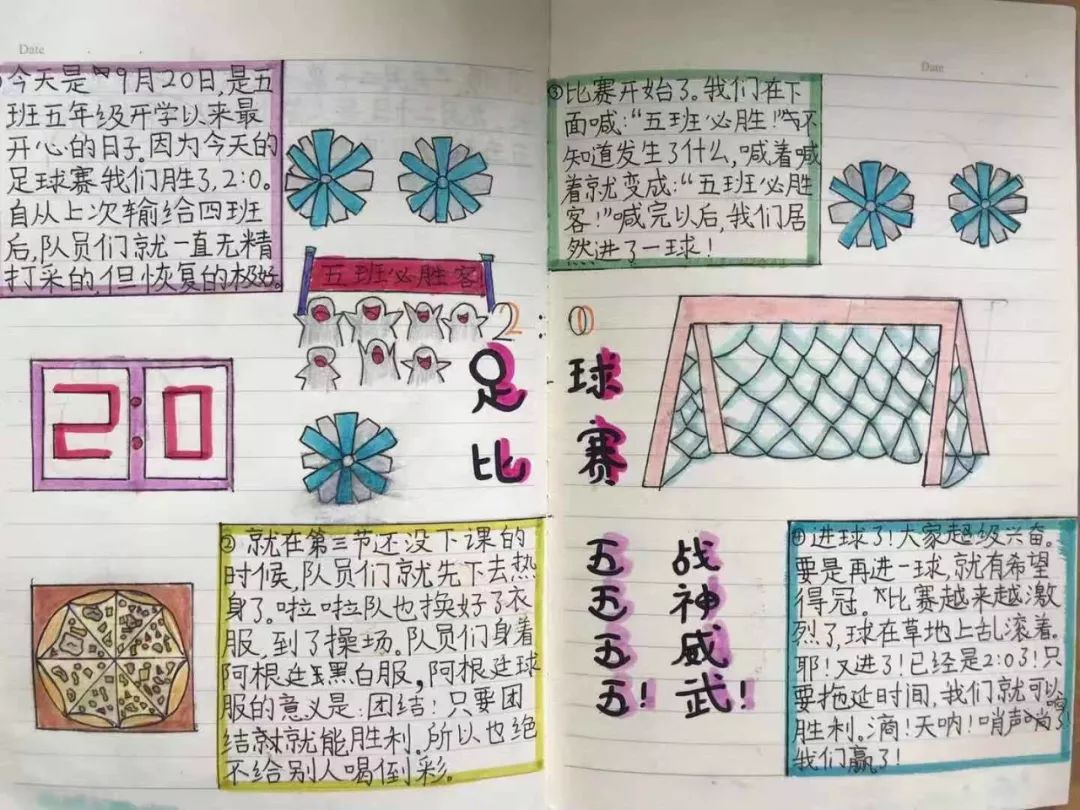 Date
①今天是9月20日,是五
班五年级开学以来最
开心的日子。因为今天的
足球赛我们胜了,2:0。
自从上次输给四班
后,队员们就一直无精
打采的,但恢复的极好。
五班必胜客
2:0
足球
比赛
2:0
②就在第三节还没下课的
时候,队员们就先下去热
身了。啦啦队也换好了衣
服,到了操场。队员们身着
阿根廷黑白服,阿根廷球
服的意义是:团结!只要团
结就就能胜利。所以也绝
不给别人喝倒彩。
Date
③比赛开始了。我们在下
面喊:“五班必胜!”不
知道发生了什么,喊着喊
着就变成:“五班必胜
客!”喊完以后,我们居
然进了一球!
五 战
五 神
五 威
五! 武!
④进球了!大家超级兴奋。
要是再进一球,就有希望
得冠。比赛越来越激
烈了,球在草地上乱滚着。
耶!又进了!已经是2:0了!只
要拖延时间,我们就可以
胜利。滴!天呐!哨声响了!
我们赢了!